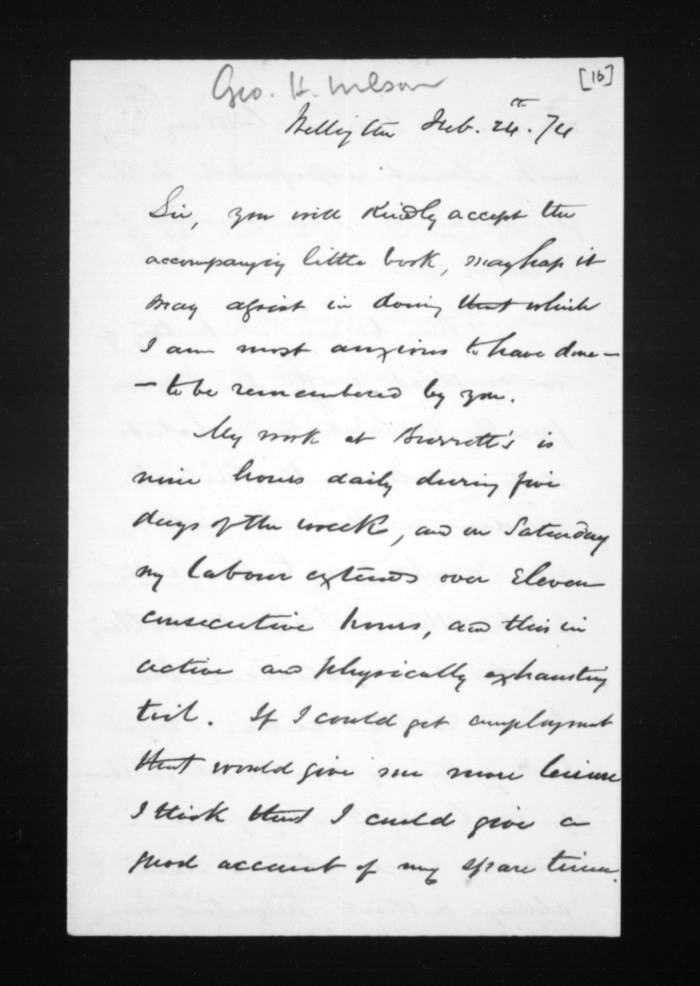 Geo. H. Wilson
[16]
Wellington Feb. 24th. 74
Sir, you will kindly accept the
accompanying little book, mayhap it
may assist in doing that which
I am most anxious to have done—
— to be remembered by you.
My work at Burrett's is
nine hours daily during five
days of the week, and on Saturday
my labour extends over Eleven
consecutive hours, and this in
active and physically exhausting
toil. If I could get employment
that would give me more leisure
I think that I could give a
good account of my spare time.